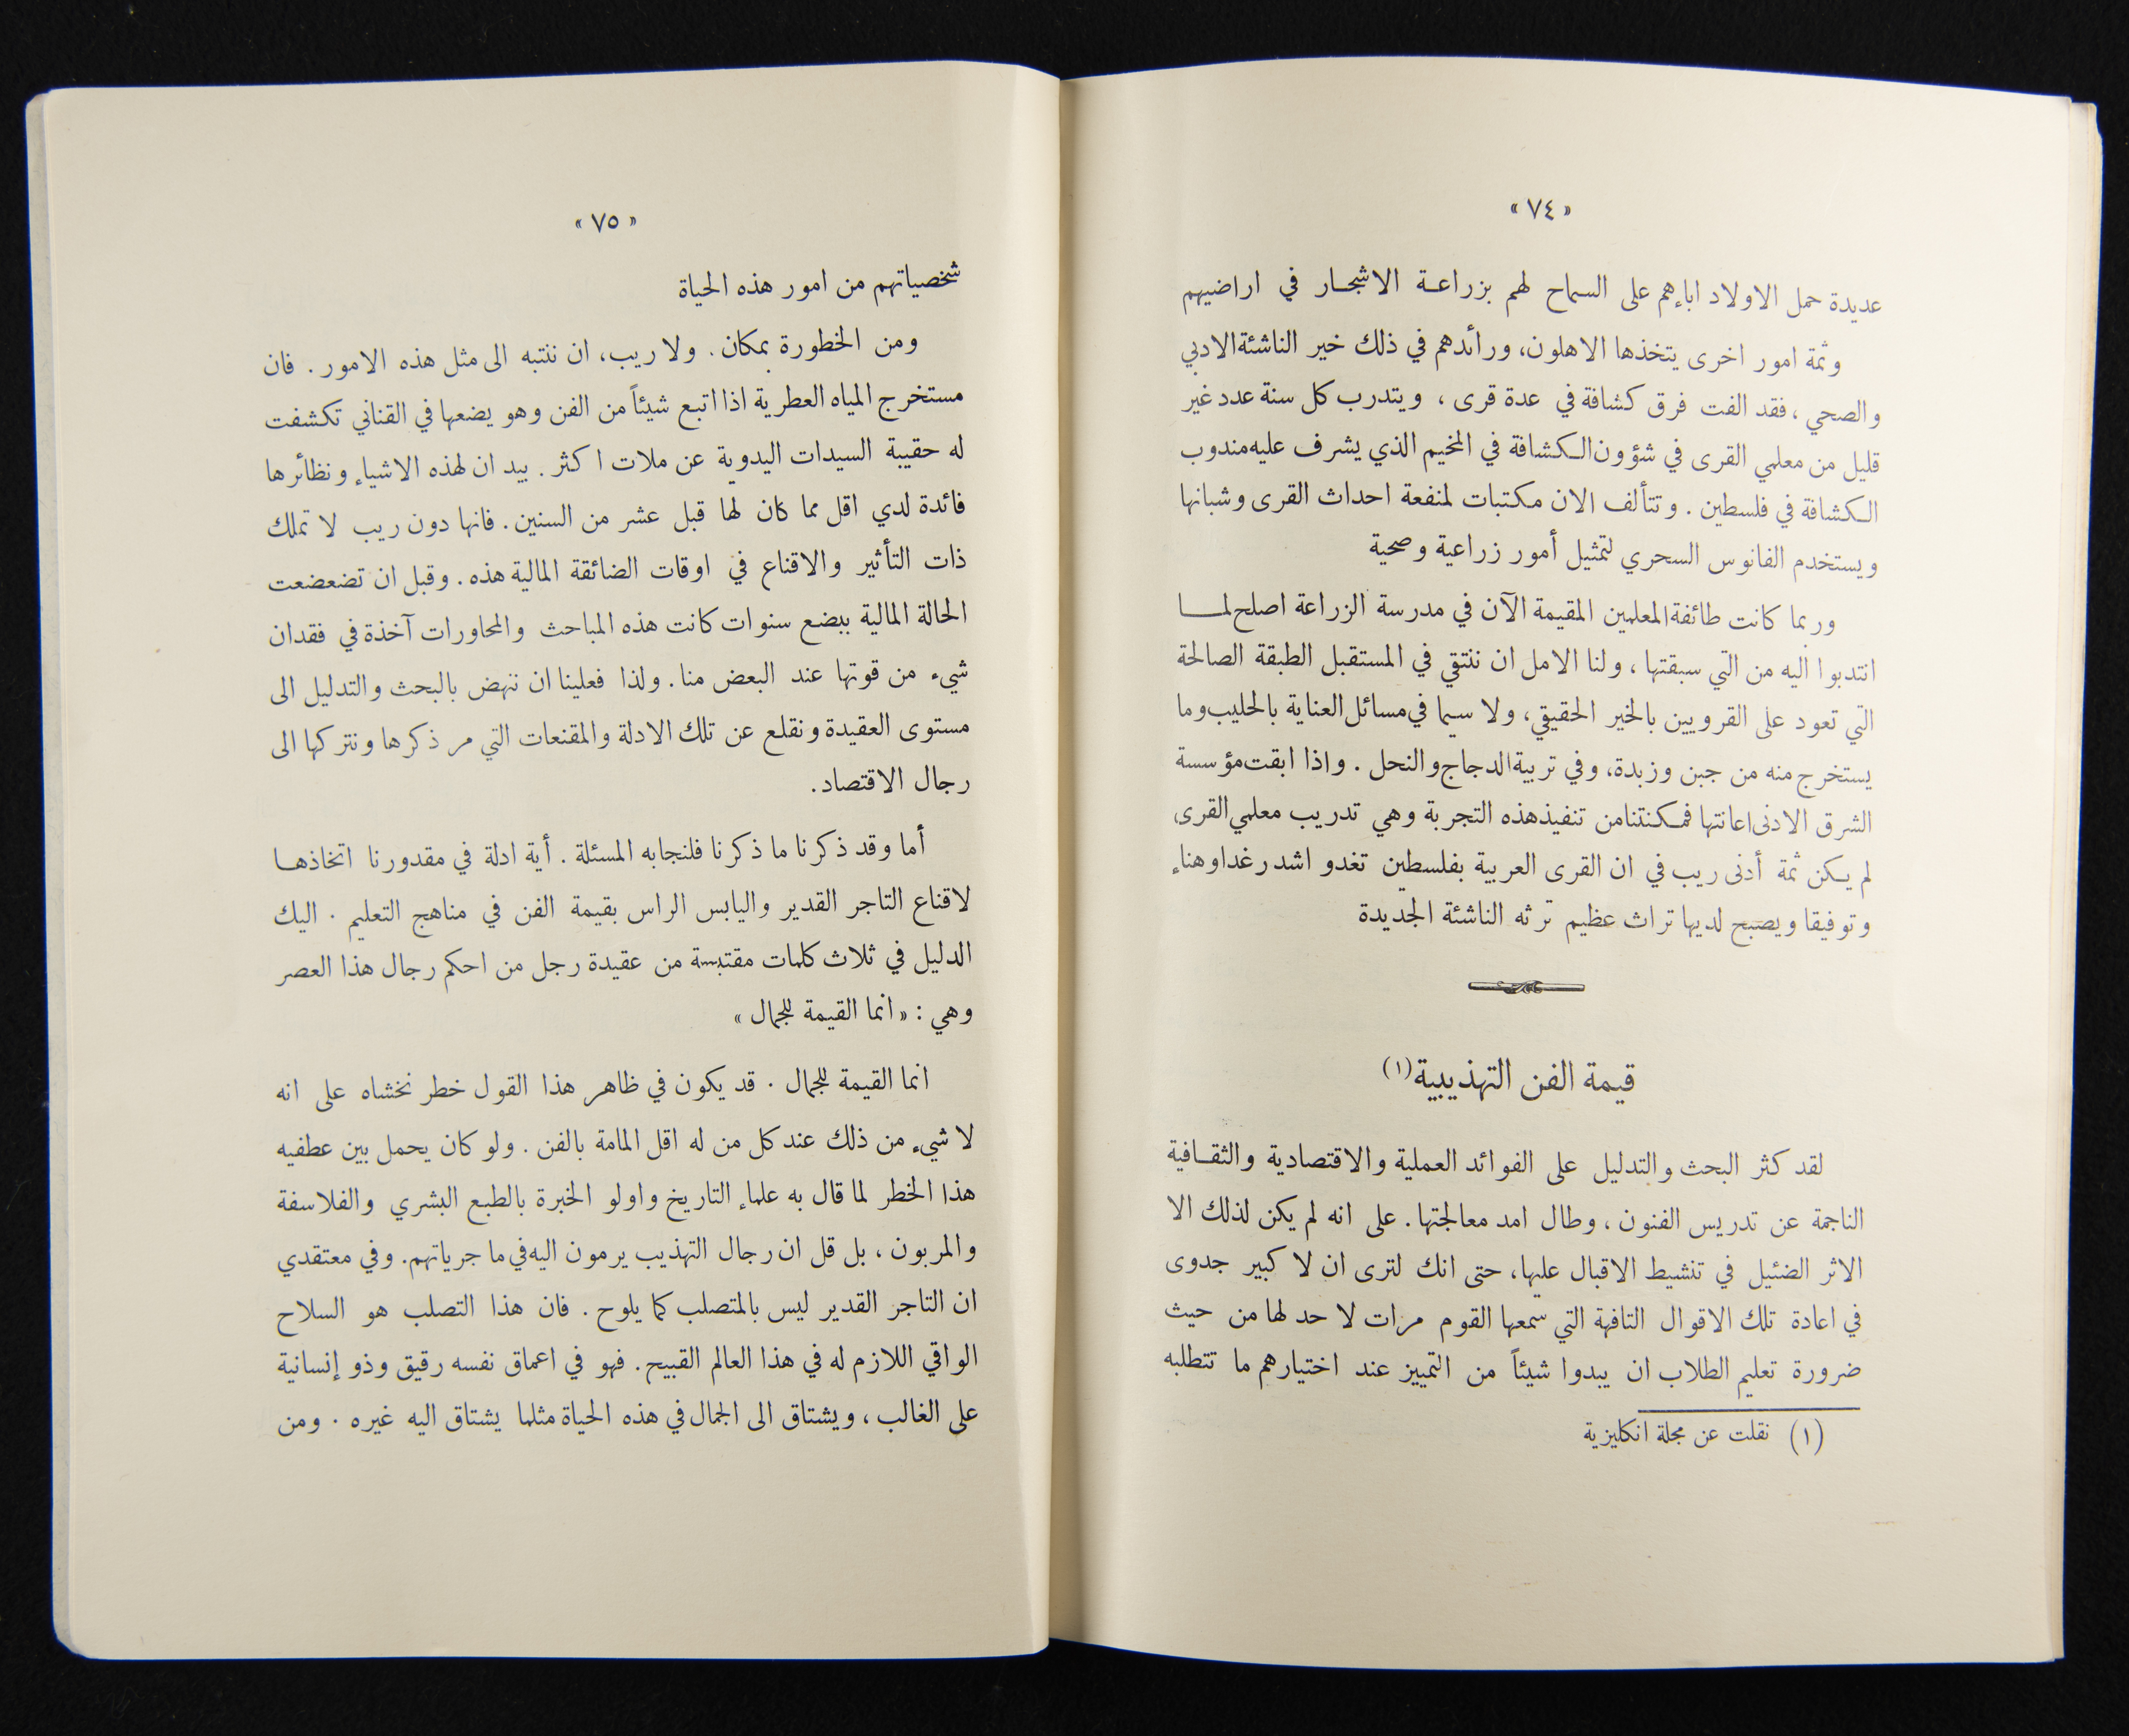 « ٧٤ »
عديدة حمل الاولاد اباءهم على السماح لهم بزراعة الاشجار في اراضيهم
وثمة امور اخرى يتخذها الاهلون، ورائدهم في ذلك خير الناشئة الادبي
والصحي، فقد الفت فرق كشافة في عدة قرى، ويتدرب كل سنة عدد غير
قليل من معلمي القرى في شؤون الكشافة في المخيم الذي يشرف عليه مندوب
الكشافة في فلسطين. وتتألف الان مكتبات لمنفعة احداث القرى وشبانها
ويستخدم الفانوس السحري لتمثيل أمور زراعية وصحية
وربما كانت طائفة المعلمين المقيمة الآن في مدرسة الزراعة اصلح لما
انتدبوا اليه من التي سبقتها، ولنا الامل ان ننتقي في المستقبل الطبقة الصالحة
التي تعود على القرويين بالخير الحقيقي، ولا سيما في مسائل العناية بالحليب وما
يستخرج منه من جبن وزبدة، وفي تربية الدجاج والنحل. واذا ابقت مؤسسة
الشرق الادنى اعانتها فمكنتنا من تنفيذ هذه التجربة وهي تدريب معلمي القرى،
لم يكن ثمة أدنى ريب في ان القرى العربية بفلسطين تغدو اشد رغدا وهناء
وتوفيقا ويصبح لديها تراث عظيم ترثه الناشئة الجديدة
قيمة الفن التهذيبية (١)
لقد كثر البحث والتدليل على الفوائد العملية والاقتصادية والثقافية
الناجمة عن تدريس الفنون، وطال امد معالجتها. على انه لم يكن لذلك الا
الاثر الضئيل في تنشيط الاقبال عليها، حتى انك لترى ان لا كبير جدوى
في اعادة تلك الاقوال التافهة التي سمعها القوم مرات لا حد لها من حيث
ضرورة تعليم الطلاب ان يبدوا شيئاً من التمييز عند اختيارهم ما تتطلبه
(١) نقلت عن مجلة انكليزية
« ٧٥ »
شخصياتهم من امور هذه الحياة
ومن الخطورة بمكان. ولا ريب، ان ننتبه الى مثل هذه الامور. فان
مستخرج المياه العطرية اذا اتبع شيئاً من الفن وهو يضعها في القناني تكشفت
له حقيبة السيدات اليدوية عن ملات اكثر. بيد ان لهذه الاشياء ونظائرها
فائدة لدي اقل مما كان لها قبل عشر من السنين. فانها دون ريب لا تملك
ذات التأثير والاقناع في اوقات الضائقة المالية هذه. وقبل ان تضعضعت
الحالة المالية ببضع سنوات كانت هذه المباحث والمحاورات آخذة في فقدان
شيء من قوتها عند البعض منا. ولذا فعلينا ان ننهض بالبحث والتدليل الى
مستوى العقيدة ونقلع عن تلك الادلة والمقنعات التي مر ذكرها ونتركها الى
رجال الاقتصاد.
أما وقد ذكرنا ما ذكرنا فلنجابه المسئلة. أية ادلة في مقدورنا اتخاذها
لاقناع التاجر القدير واليابس الراس بقيمة الفن في مناهج التعليم. اليك
الدليل في ثلاث كلمات مقتبسة من عقيدة رجل من احكم رجال هذا العصر
وهي : « انما القيمة للجمال »
انما القيمة للجمال. قد يكون في ظاهر هذا القول خطر نخشاه على انه
لا شيء من ذلك عند كل من له اقل المامة بالفن. ولو كان يحمل بين عطفيه
هذا الخطر لما قال به علماء التاريخ واولو الخبرة بالطبع البشري والفلاسفة
والمربون، بل قل ان رجال التهذيب يرمون اليه في ما جرياتهم. وفي معتقدي
ان التاجر القدير ليس بالمتصلب كما يلوح. فان هذا التصلب هو السلاح
الواقي اللازم له في هذا العالم القبيح. فهو في اعماق نفسه رقيق وذو إنسانية
على الغالب، ويشتاق الى الجمال في هذه الحياة مثلما يشتاق اليه غيره. ومن